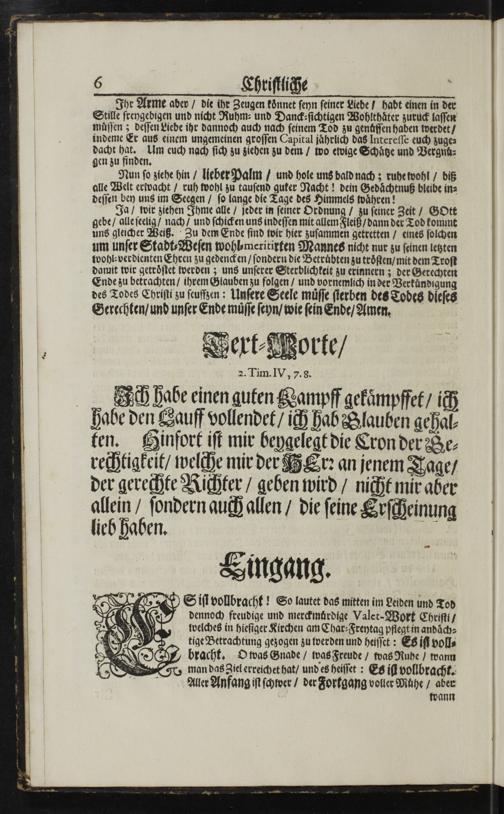 6 Christliche
Ihr Arme aber / die ihr Zeugen könnet seyn seiner Liebe / habt einen in der
Stille freygebigen und nicht Ruhm- und Danck-süchtigen Wohlthäter zuruck lassen
müssen ; dessen Liebe ihr dannoch auch nach seinem Tod zu genüssen haben werdet /
indeme Er aus einem ungemeinen grossen Capital jährlich das Interesse euch zuge-
dacht hat. Um euch nach sich zu ziehen zu dem / wo ewige Schätze und Vergnü-
gen zu finden.
Nun so ziehe hin / lieber Palm / und hole uns bald nach ; ruhe wohl / biß
alle Welt erwacht / ruh wohl zu tausend guter Nacht ! dein Gedächtnuß bleibe in-
dessen bey uns im Seegen / so lange die Tage des Himmels währen !
Ja / wir ziehen Ihme alle / jeder in seiner Ordnung / zu seiner Zeit / GOtt
gebe / alle seelig / nach / und schicken uns indessen mit allem Fleiß / dann der Tod kommt
uns gleicher Weiß. Zu dem Ende sind wir hier zusammen getretten / eines solchen
um unser Stadt-Wesen wohl-meritirten Mannes nicht nur zu seinen letzten
wohl-verdienten Ehren zu gedencken / sondern die Betrübten zu trösten / mit dem Trost
damit wir getröstet werden ; uns unserer Sterblichkeit zu erinnern ; der Gerechten
Ende zu betrachten / ihrem Glauben zu folgen / und vornemlich in der Verkündigung
des Todes Christi zu seuffzen : Unsere Seele müsse sterben des Todes dieses
Gerechten / und unser Ende müsse seyn / wie sein Ende / Amen.
Text-Worte /
2. Tim. IV, 7. 8.
Ich habe einen guten Kampff gekämpffet / ich
habe den Lauff vollendet / ich hab Glauben gehal-
ten. Hinfort ist mir beygelegt die Cron der Ge-
rechtigkeit / welche mir der HErr an jenem Tage /
der gerechte Richter / geben wird / nicht mir aber
allein / sondern auch allen / die seine Erscheinung
lieb haben.
Eingang.
ES ist vollbracht ! So lautet das mitten im Leiden und Tod
dennoch freudige und merckwürdige Valet-Wort Christi /
welches in hiesiger Kirchen am Char-Freytag pflegt in andäch-
tige Betrachtung gezogen zu werden und heisset : Es ist voll-
bracht. O was Gnade / was Freude / was Ruhe / wann
man das Ziel erreichet hat / und es heisset : Es ist vollbracht.
Aller Anfang ist schwer / der Fortgang voller Mühe / aber
wann